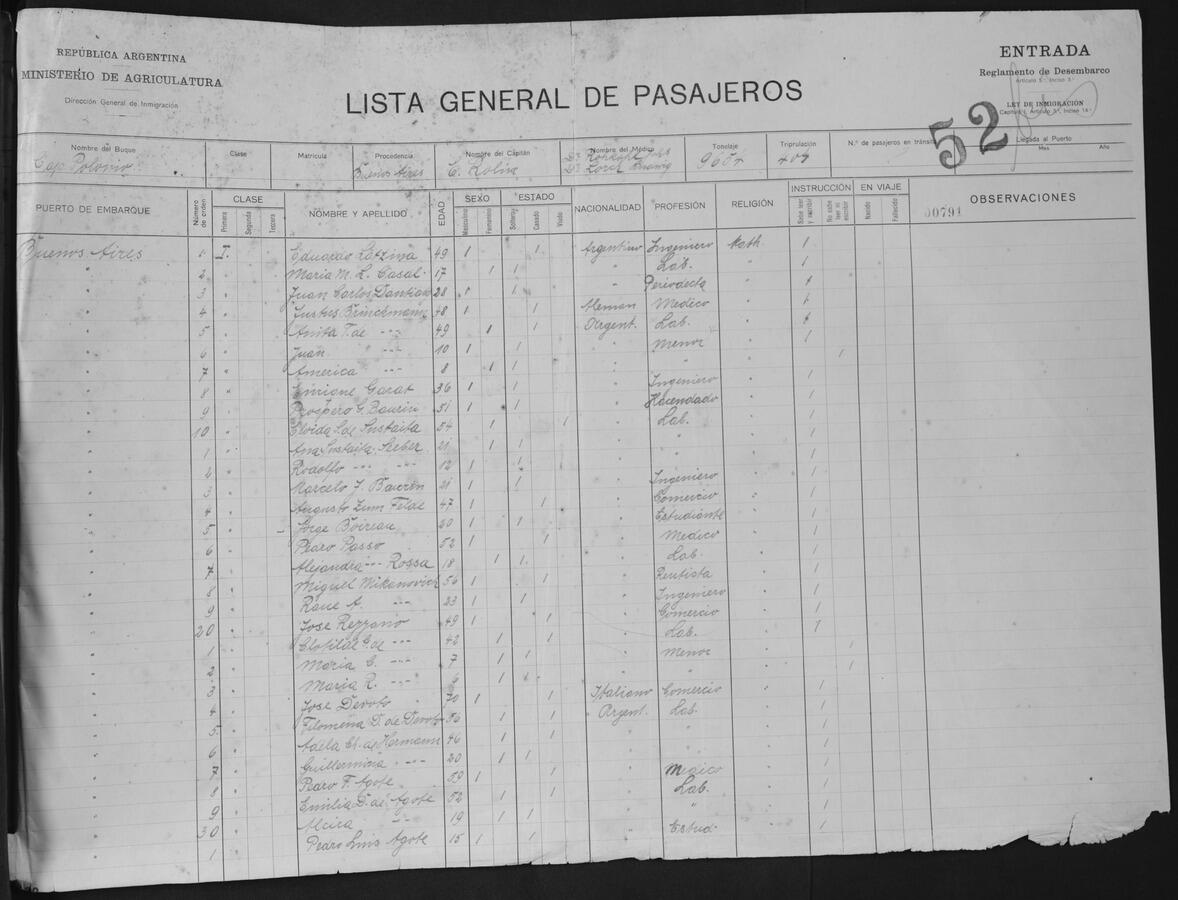 REPÚBLICA ARGENTINA
MINISTERIO DE AGRICULTURA
Dirección General de Inmigración
LISTA GENERAL DE PASAJEROS
ENTRADA
Reglamento de Desembarco
Artículo 5º, Inciso 3º
LEY DE INMIGRACIÓN
Capítulo I, Artículo 3º, Inciso 14º
52
Nombre del Buque Clase Matrícula Procedencia Nombre del Capitán Nombre del Médico Tonelaje Tripulación N.º de pasajeros en tránsito Llegada al Puerto
Mes Año
Cap Polonio Buenos Aires E. Rolin Dr. Dr. 407
PUERTO DE EMBARQUE Número de orden CLASE Primera Segunda Tercera NOMBRE Y APELLIDO EDAD SEXO Masculino Femenino ESTADO Soltero Casado Viudo NACIONALIDAD PROFESIÓN RELIGIÓN INSTRUCCIÓN Sabe leer y escribir No sabe leer ni escribir EN VIAJE Nacido Fallecido OBSERVACIONES
00791
Buenos Aires 1 I. Eduardo Latzina 49 1 1 Argentino Ingeniero Kath. 1
" 2 " Maria M. L. Casal 17 1 1 " Lab. " 1
" 3 " Juan Carlos Dantiano 28 1 1 " Periodecta " 1
" 4 " Justus Brinckmann 48 1 1 Aleman Medico " 1
" 5 " Anita T. de --- 49 1 1 Argent. Lab. " 1
" 6 " Juan --- 10 1 1 " Menor " 1
" 7 " America --- 8 1 1 " " 1
" 8 " Enrique Garat 36 1 1 " Ingeniero " 1
" 9 " Prospero G. Baurin 51 1 1 " Hacendado " 1
" 10 " Elvida S. de Sustaita 54 1 1 " Lab. " 1
" 1 " Ana Sustaita Seeber 21 1 1 " " " 1
" 2 " Rodolfo --- --- 12 1 1 " " 1
" 3 " Marcelo J. Baurin 21 1 1 " Ingeniero " 1
" 4 " Augusto Zum Felde 47 1 1 " Comercio " 1
" 5 " Jorge Boireau 20 1 1 " Estudiante " 1
" 6 " Pedro Passo 52 1 1 " Medico " 1
" 7 " Alejandra --- Rossa 18 1 1 " Lab. " 1
" 8 " Miguel Mikanovich 56 1 1 " Rentista " 1
" 9 " Rane A. --- 23 1 1 " Ingeniero " 1
" 20 " Jose Rezzano 49 1 1 " Comercio " 1
" 1 " Clotilde C. de --- 42 1 1 " Lab. " 1
" 2 " Maria C. --- 7 1 1 " Menor " 1
" 3 " Maria R. --- 6 1 1 " " " 1
" 4 " Jose Devoto 70 1 1 Italiano Comercio " 1
" 5 " Filomena D. de Devoto 56 1 1 Argent. Lab. " 1
" 6 " Adela Ch. de Hermann 46 1 1 " " 1
" 7 " Guillermina --- 20 1 1 " " 1
" 8 " Pedro F. Agote 59 1 1 " Medico " 1
" 9 " Emilia D. de Agote 52 1 1 " Lab. " 1
" 30 " Alcira --- 19 1 1 " " " 1
" 1 " Pedro Luis Agote 15 1 1 " Estud. " 1